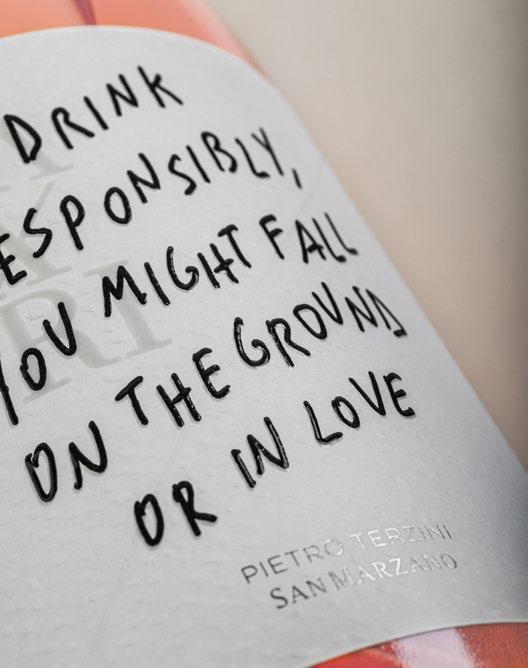 DRINK
ESPONSIBLY,
YOU MIGHT FALL
ON THE GROUND
OR IN LOVE
PIETRO TERZINI
SAN MARZANO